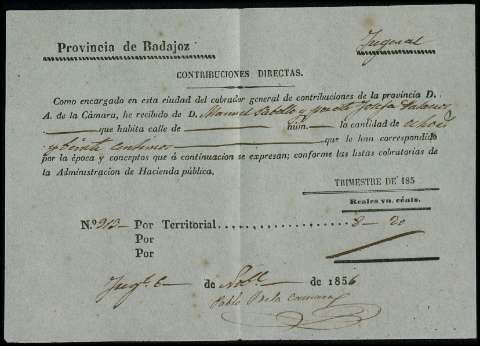 Provincia de Badajoz
CONTRIBUCIONES DIRECTAS.
Como encargado en esta ciudad del cobrador general de contribuciones de la provincia D.
A. de la Cámara, he recibido de D. Manuel
que habita calle de núm. la cantidad de ocho r
y veinte centimos que le han correspondido
por la época y conceptos que á continuacion se expresan; conforme las listas cobratorias de
la Administracion de Hacienda pública.
TRIMESTRE DE 185
Reales vn. cénts.
N.º 913 Por Territorial 8 20
Por
Por
6 de Nobe de 1856
Pablo